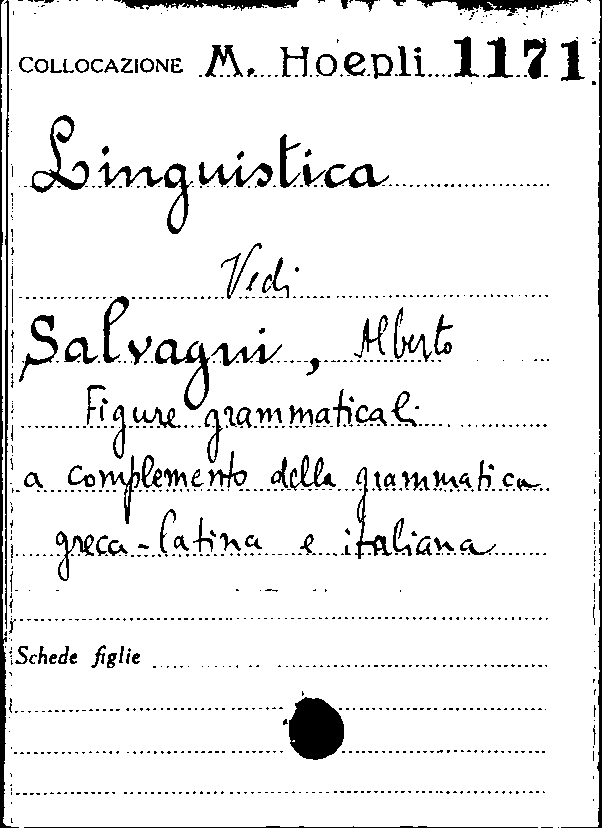 COLLOCAZIONE M. Hoepli 1171
Linguistica
Vedi
Salvagni, Alberto
Figure grammaticali
a complemento della grammatica
greca-latina e italiana
Schede figlie